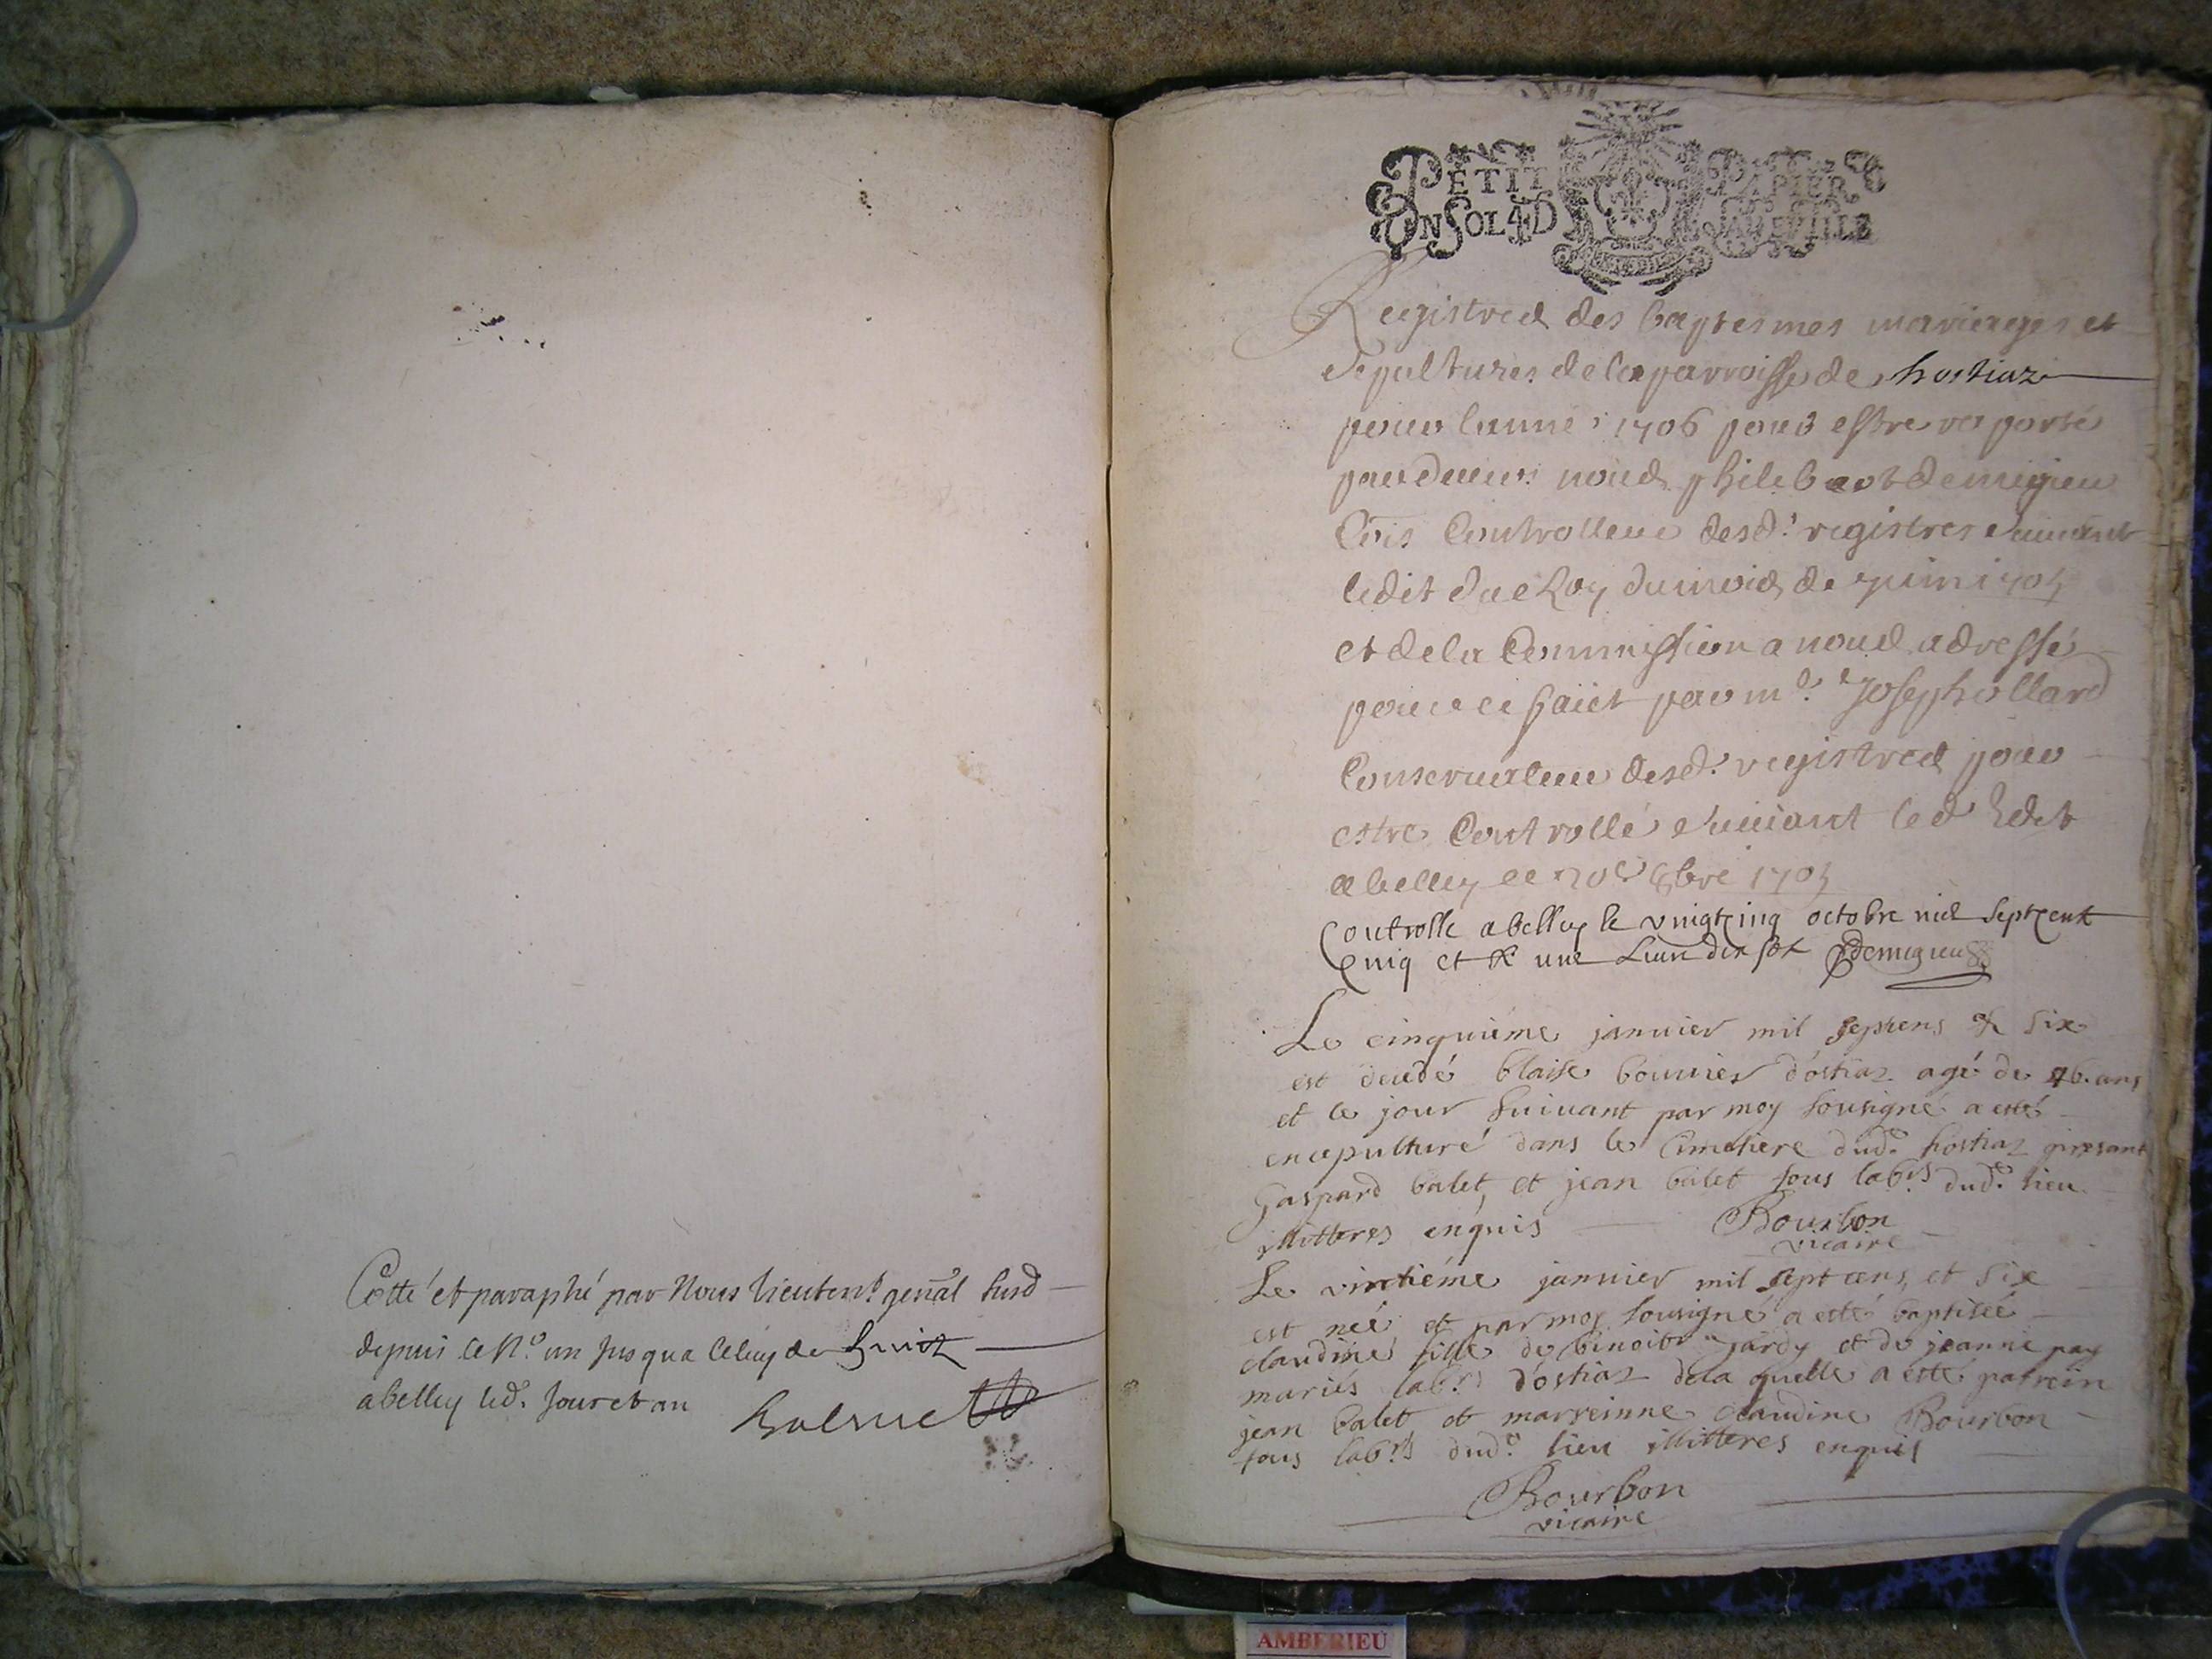 Cotté et paraphé par Nous Lieuten.t genãl susd
depuis le N.o un jusqua celuy de huict
a belley led. jour et an
PETIT PAPIER
UN SOL 4 D
Registres des baptesmes mariages et
sepultures de la parroisse de hostiaz
pour lanné 1706 pour estre raporté
pardeuers nous philebert demigieu
Controlleur desd. registres suiuant
ledit du Roy du mois de juin 1705
et de la Commission a nous adressé
pour ce faict par m.e Joseph ollard
Conseruateur desd. registres pour
estre Controllé suiuant led Edit
a belley ce 20e 8bre 1705
Controlle a belley le vingtcinq octobre mil septcent
cinq et R une Liure dix sol Demigieu
Le cinquiéme januier mil septcens & six
est decedé blaise bouuier d'ostiaz agé de ans
et le jour suiuant par moy sousigné a esté
encepulturé dans le Cimetiere dud. hostiaz presant
Gaspard balet, et jean balet tous lab.rs dud. lieu
illitteres enquis Bourbon
vicaire
Le vintiéme januier mil septcens, et six
est neé et par moy sousigné a esté baptiseé
claudine fille de binoit jardy et de jeanne pay
mariés lab.rs d'ostiaz de la quelle a esté parrein
jean balet et marreinne claudine Bourbon
tous lab.rs dud. lieu illitteres enquis
Bourbon
vicaire
AMBERIEU